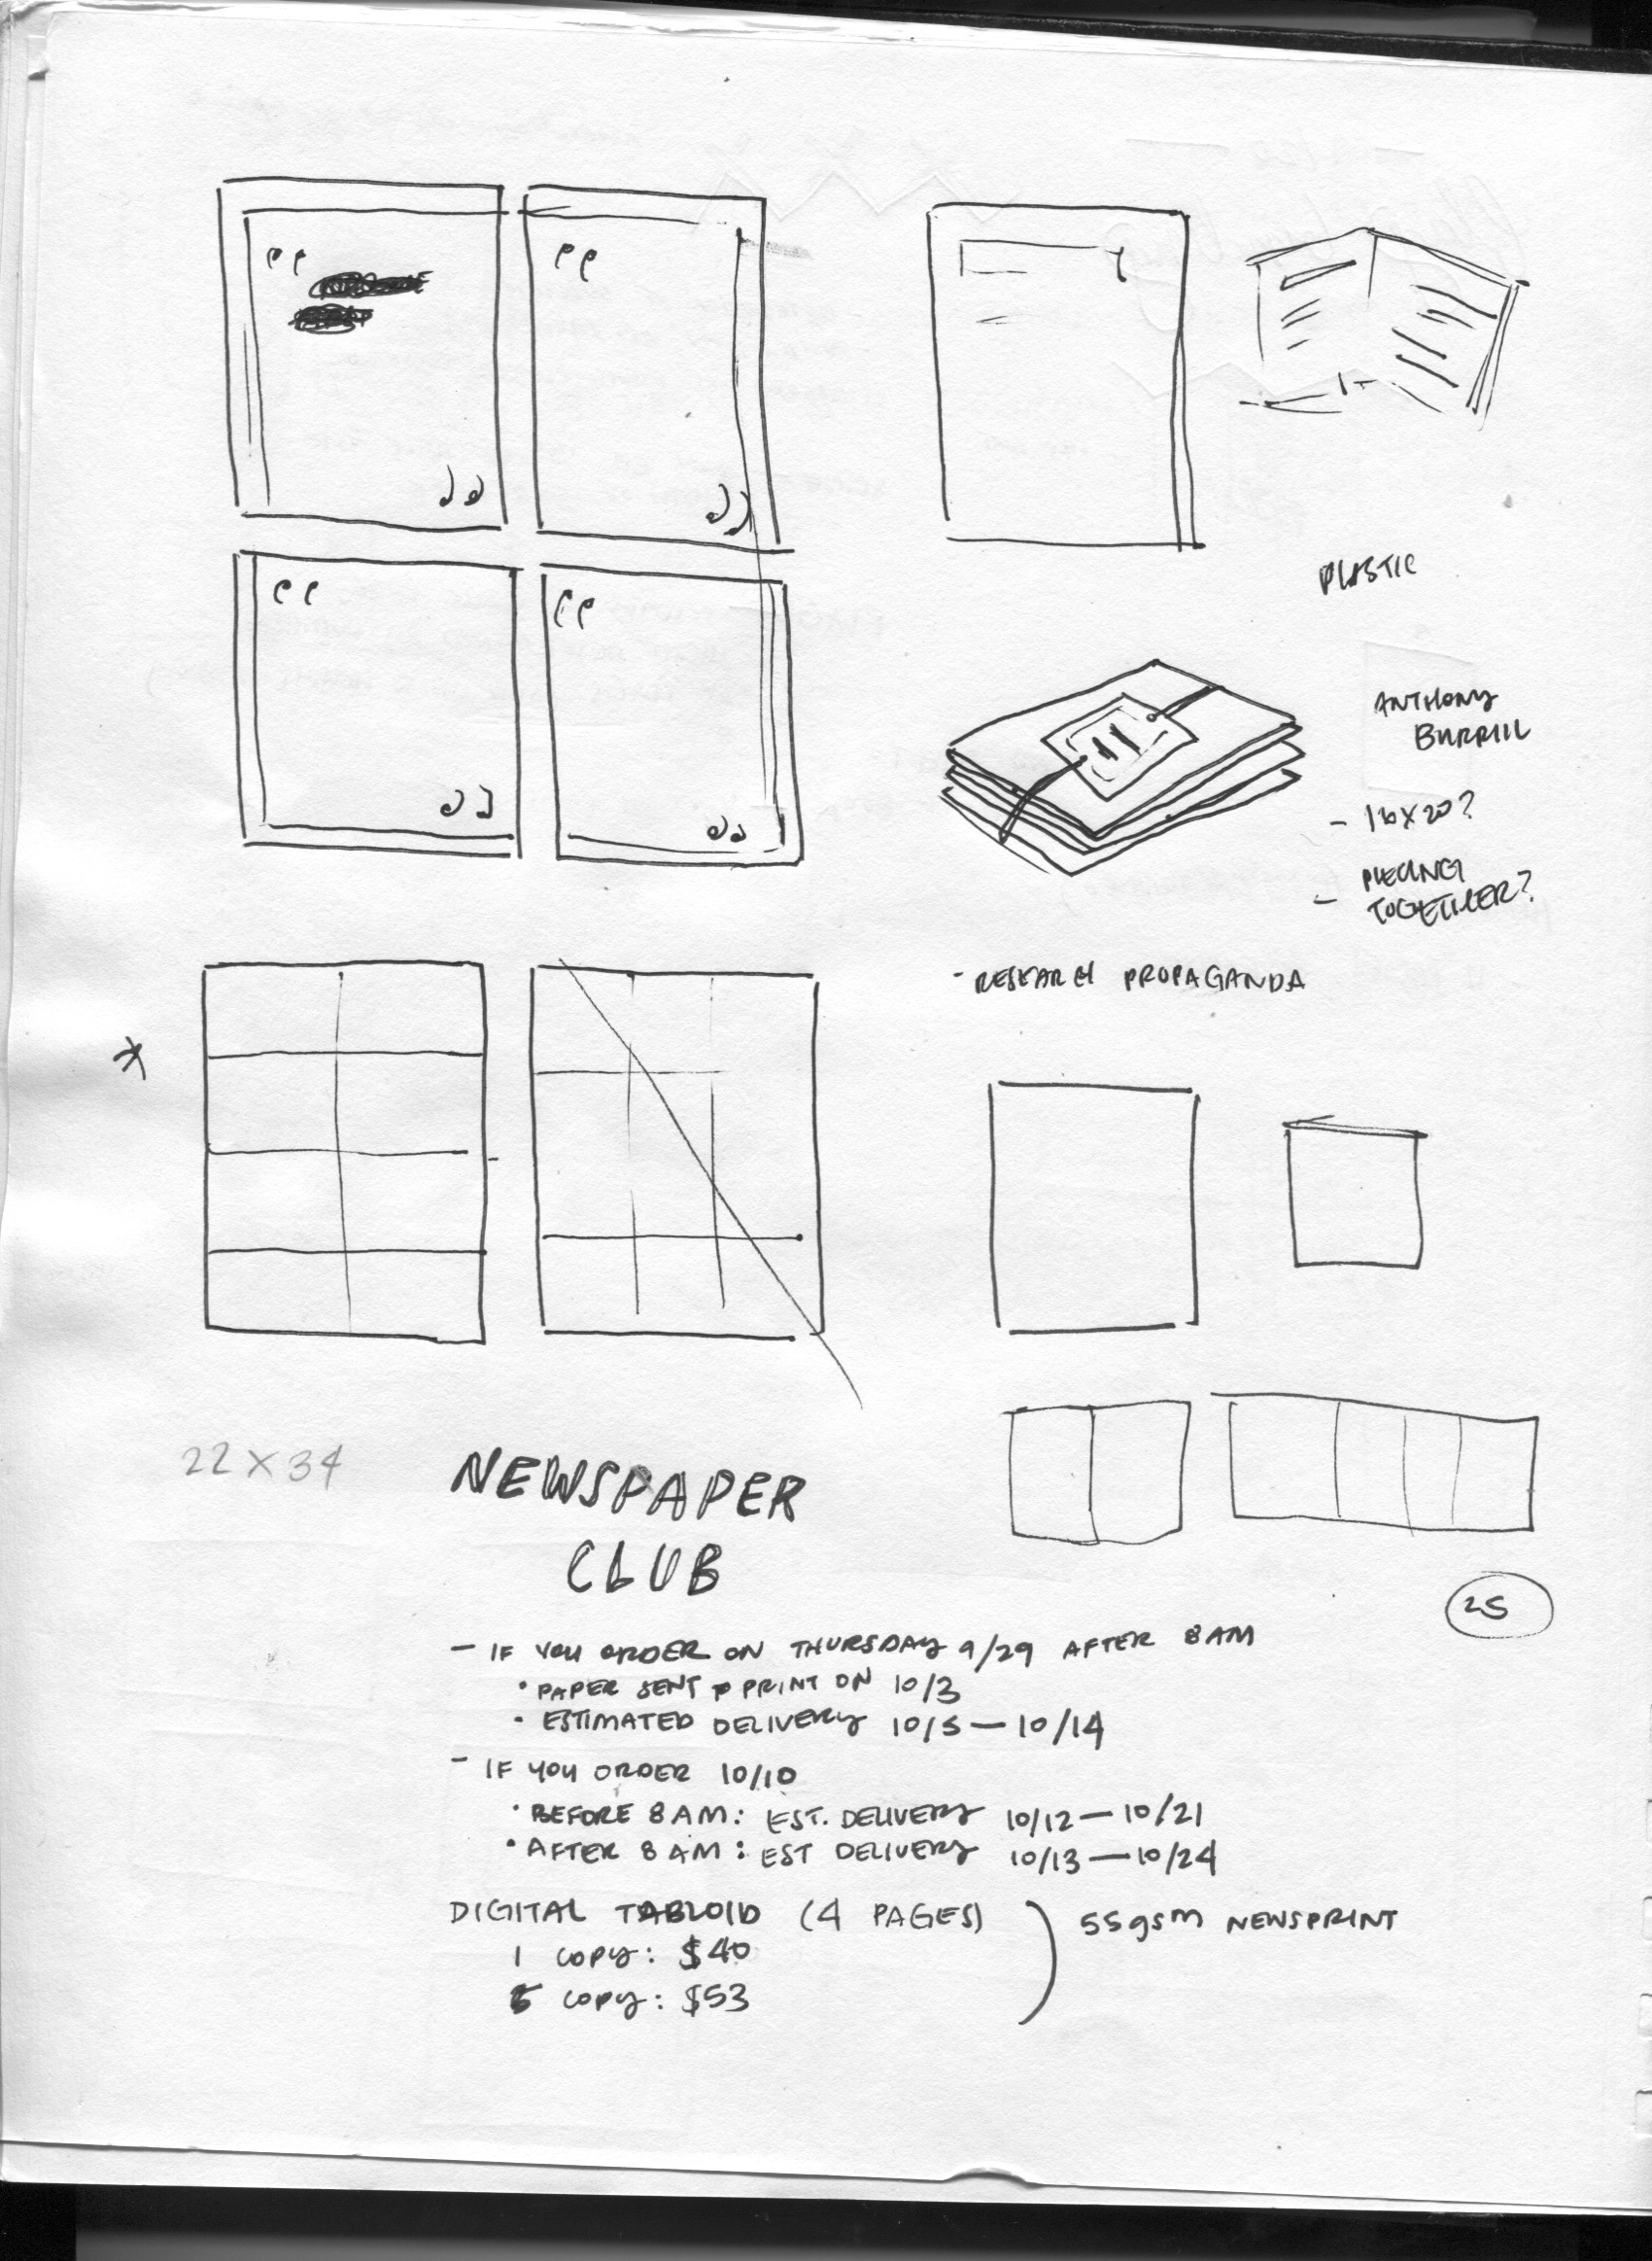 PLASTIC
ANTHONY
BURRILL
- 16X20?
- PIECING
TOGETHER?
- RESEARCH PROPAGANDA
22 X 34
NEWSPAPER
CLUB
25
- IF YOU ORDER ON THURSDAY 9/29 AFTER 8 AM
• PAPER SENT PRINT ON 10/3
• ESTIMATED DELIVERY 10/5 — 10/14
- IF YOU ORDER 10/10
• BEFORE 8 AM: EST. DELIVERY 10/12 — 10/21
• AFTER 8 AM: EST DELIVERY 10/13 — 10/24
DIGITAL TABLOID (4 PAGES) ) 55gsm NEWSPRINT
1 COPY: $40
5 COPY: $53